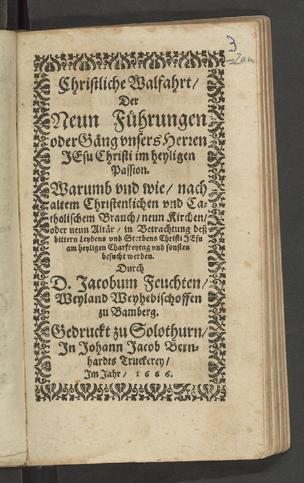 3
Christliche Walfahrt/
Der
Neun Führungen
oder Gäng vnsers Herren
JEsu Christi im heyligen
Passion.
Warumb vnd wie/ nach
altem Christenlichen vnd Ca-
tholischem Brauch/ neun Kirchen/
oder neun Altär/ in Betrachtung deß
bittern Leydens vnd Sterbens Christi JEsu
am heyligen Charfreytag vnd sonsten
besucht werden.
Durch
D. Jacobum Feuchten/
Weyland Weyhebischoffen
zu Bamberg.
Gedruckt zu Solothurn/
In Johann Jacob Bern-
hardts Truckerey/
Im Jahr/ 1666.